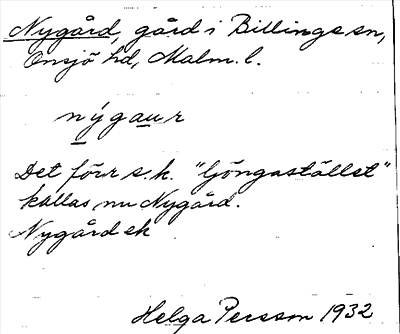 Nygård, gård i Billinge sn,
Onsjö hd, Malm. l.
nýgau̲r
Det förr s.k. "Göngastället"
kallas nu Nygård.
Nygård ek
Helga Persson 1932